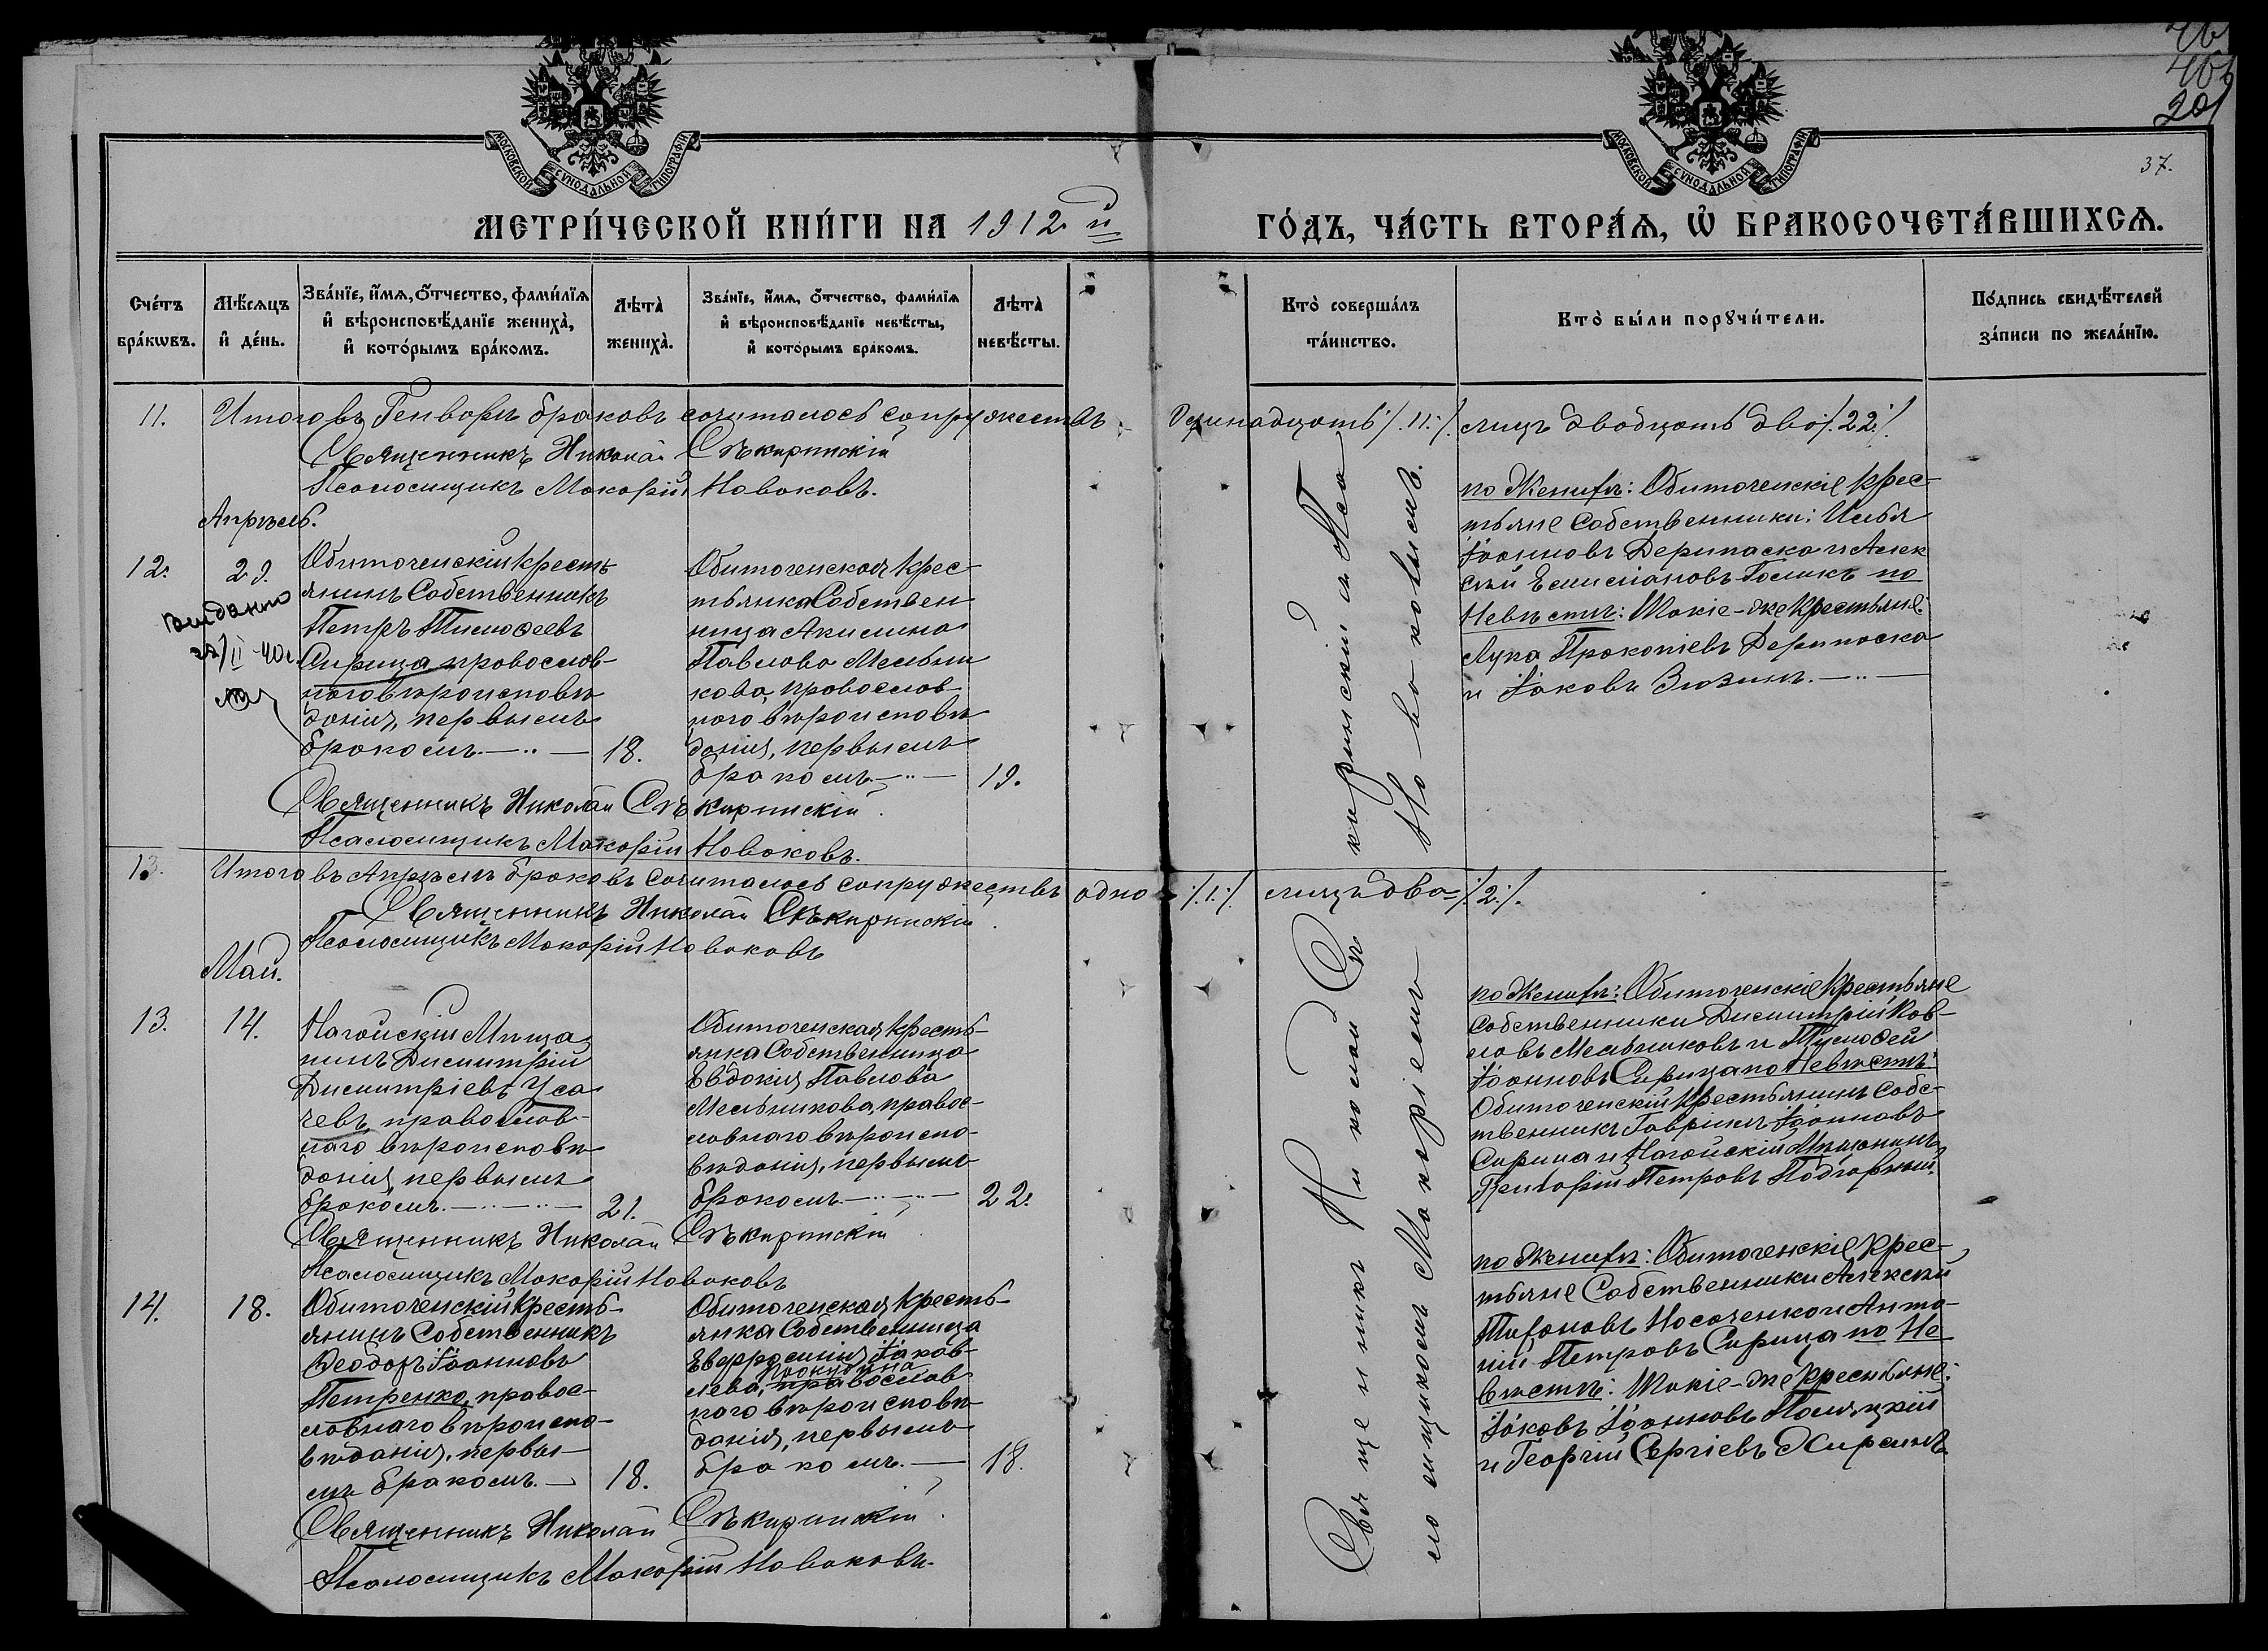 201
37.
МОСКОВСКОЙ СѴНОДАЛЬНОЙ ТИПОГРАФІИ
МОСКОВСКОЙ СѴНОДАЛЬНОЙ ТИПОГРАФІИ
МЕТРИ́ЧЕСКОЙ КНИ́ГИ НА 1912 й
ГО́ДЪ, ЧА́СТЬ ВТОРА́Ѧ, Ѡ҆ БРАКОСОЧЕТА́ВШИХСѦ.
Счéтъ
брáкѡвъ.
Мѣ́сяцъ
и҆ дéнь.
Звáнїе, и҆́мѧ, ѻ҆́тчество, фами́лїѧ
и҆ вѣроисповѣ́данїе женихà,
и҆ кото́рымъ брáкомъ.
Лѣтà
женихà.
Звáнїе, и҆́мѧ, ѻ҆́тчество, фами́лїѧ
и҆ вѣроисповѣ́данїе невѣ́сты,
и҆ кото́рымъ брáкомъ.
Лѣтà
невѣ́сты.
Кто̀ совершáлъ
тáинство.
Кто̀ бы́ли порꙋчи́тели.
Пóдпись свидѣ́телей
зáписи по желáнїю.
11. Итого въ Генварѣ браковъ сочиталось супружествъ одинадцать /.11./. лицъ двадцать два /.22./.
Священникъ Николай Сѣкиринскій
Псаломщикъ Макарій Новаковъ.
Апрѣль.
12.
29.
Выдано
Обиточенскій крестъ
янинъ Собственникъ
Петръ Тимоѳеевъ
Сирица православ-
наго вѣроисповѣ
данія, первымъ
бракомъ.
18.
Обиточенская крес
тьянка Собствен
ница Акилина
Павлова Мельни
кова, православ-
наго вѣроисповѣ
данія, первымъ
бракомъ.
19.
по Женихѣ: Обиточенскіе крес-
тьяне Собственники: Илья
Іоанновъ Дерипаска и Алек
сѣй Емиліановъ Голикъ по
Невѣстѣ: Такіе-же Крестьяне:
Лука Прокопіевъ Дерипаска
и Іаковъ Зюзинъ.
Священникъ Николай Сѣкиринскій.
Псаломщикъ Макарій Новаковъ.
13. Итого въ Апрѣлѣ браковъ сочиталось супружествъ одно /.1./. лицъ два /.2./.
Священникъ Николай Сѣкиринскій.
Псаломщикъ Макарій Новаковъ
Май.
13.
14.
Нагойскій Мѣща
нинъ Димитрій
Димитріевъ Уса
чевъ, православ-
наго вѣроисповѣ
данія, первымъ
бракомъ.
21.
Обиточенская кресть-
янка Собственница
Евдокія Павлова
Мельникова, правос-
лавнаго вѣроиспо-
вѣданія, первымъ
бракомъ.
22.
по Женихѣ: Обиточенскіе крестьяне
Собственники Димитрій Пав-
ловъ Мельниковъ и Тимоѳей
Іоанновъ Сирица по Невѣстѣ:
Обиточенскій крестьянинъ Собс-
твенникъ Гавріилъ Іоанновъ
Сирица и Нагойскій Мѣщанинъ
Григорій Петровъ Подгорный.
Священникъ Николай Сѣкиринскій
Псаломщикъ Макарій Новаковъ
14.
18.
Обиточенскій кресть-
янинъ Собственникъ
Ѳеодоръ Іоанновъ
Петренко, правос-
лавнаго вѣроиспо-
вѣданія, первы-
мъ бракомъ.
18.
Обиточенская кресть-
янка Собственница
Евфросинія Іаков-
лева, православ
наго вѣроисповѣ-
данія, первымъ
бракомъ.
18.
по Женихѣ: Обиточенскіе крес-
тьяне Собственники Алексѣй
Тихоновъ Носаченко и Анто-
ній Петровъ Сирица по Не
вѣстѣ: Такіе-же крестьяне:
Іаковъ Іоанновъ
и Георгій Сергіевъ
Священникъ Николай Сѣкиринскій.
Псаломщикъ Макарій Новаковъ.
Священникъ Николай Сѣкиринскій и Пса
ломщикомъ Макаріемъ Новаковымъ.